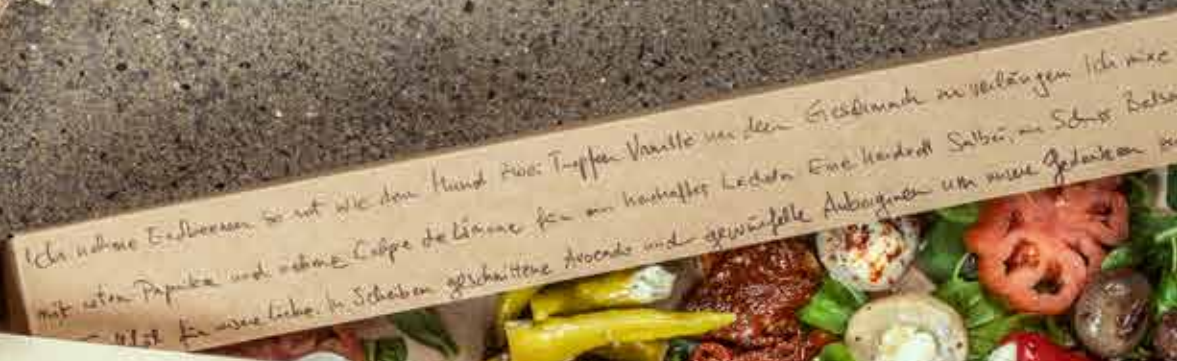 Ich nehme Erdbeeren so rot wie dein Mund zwei Tropfen Vanille um den Geschmack zu verlängern Ich mixe
mit roten Paprika und nehme Crème de für ein herzhaftes Lächeln Eine Handvoll Salbei, ein Schuß
für unsere Liebe. In Scheiben geschnittene Avocado und gewürfelte Auberginen um unsere Gedanken